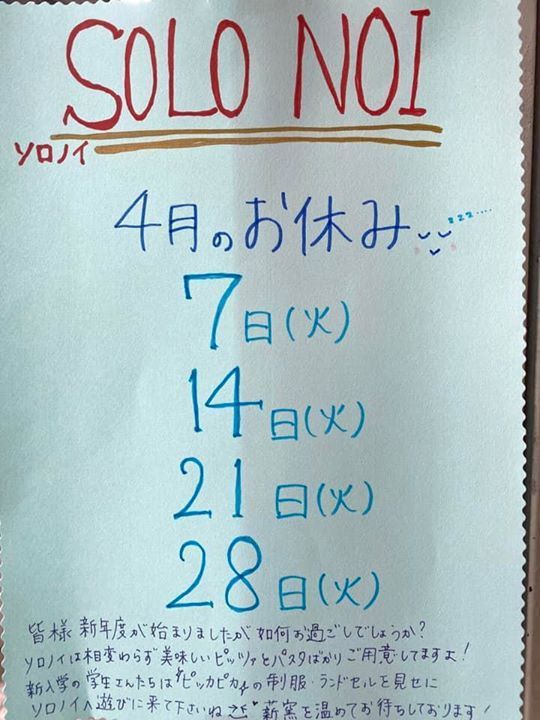 SOLO NOI
ソロノイ
4月のお休み zzz....
7日(火)
14日(火)
21日(火)
28日(火)
皆様 新年度が始まりましたが如何お過ごしでしょうか?
ソロノイは相変わらず美味しいピッツァとパスタばかりご用意してますよ!
新入学の学生さんたちは"ピッカピカ"の制服・ランドセルを見せに
ソロノイへ遊びに来て下さいね 薪窯を温めてお待ちしております!